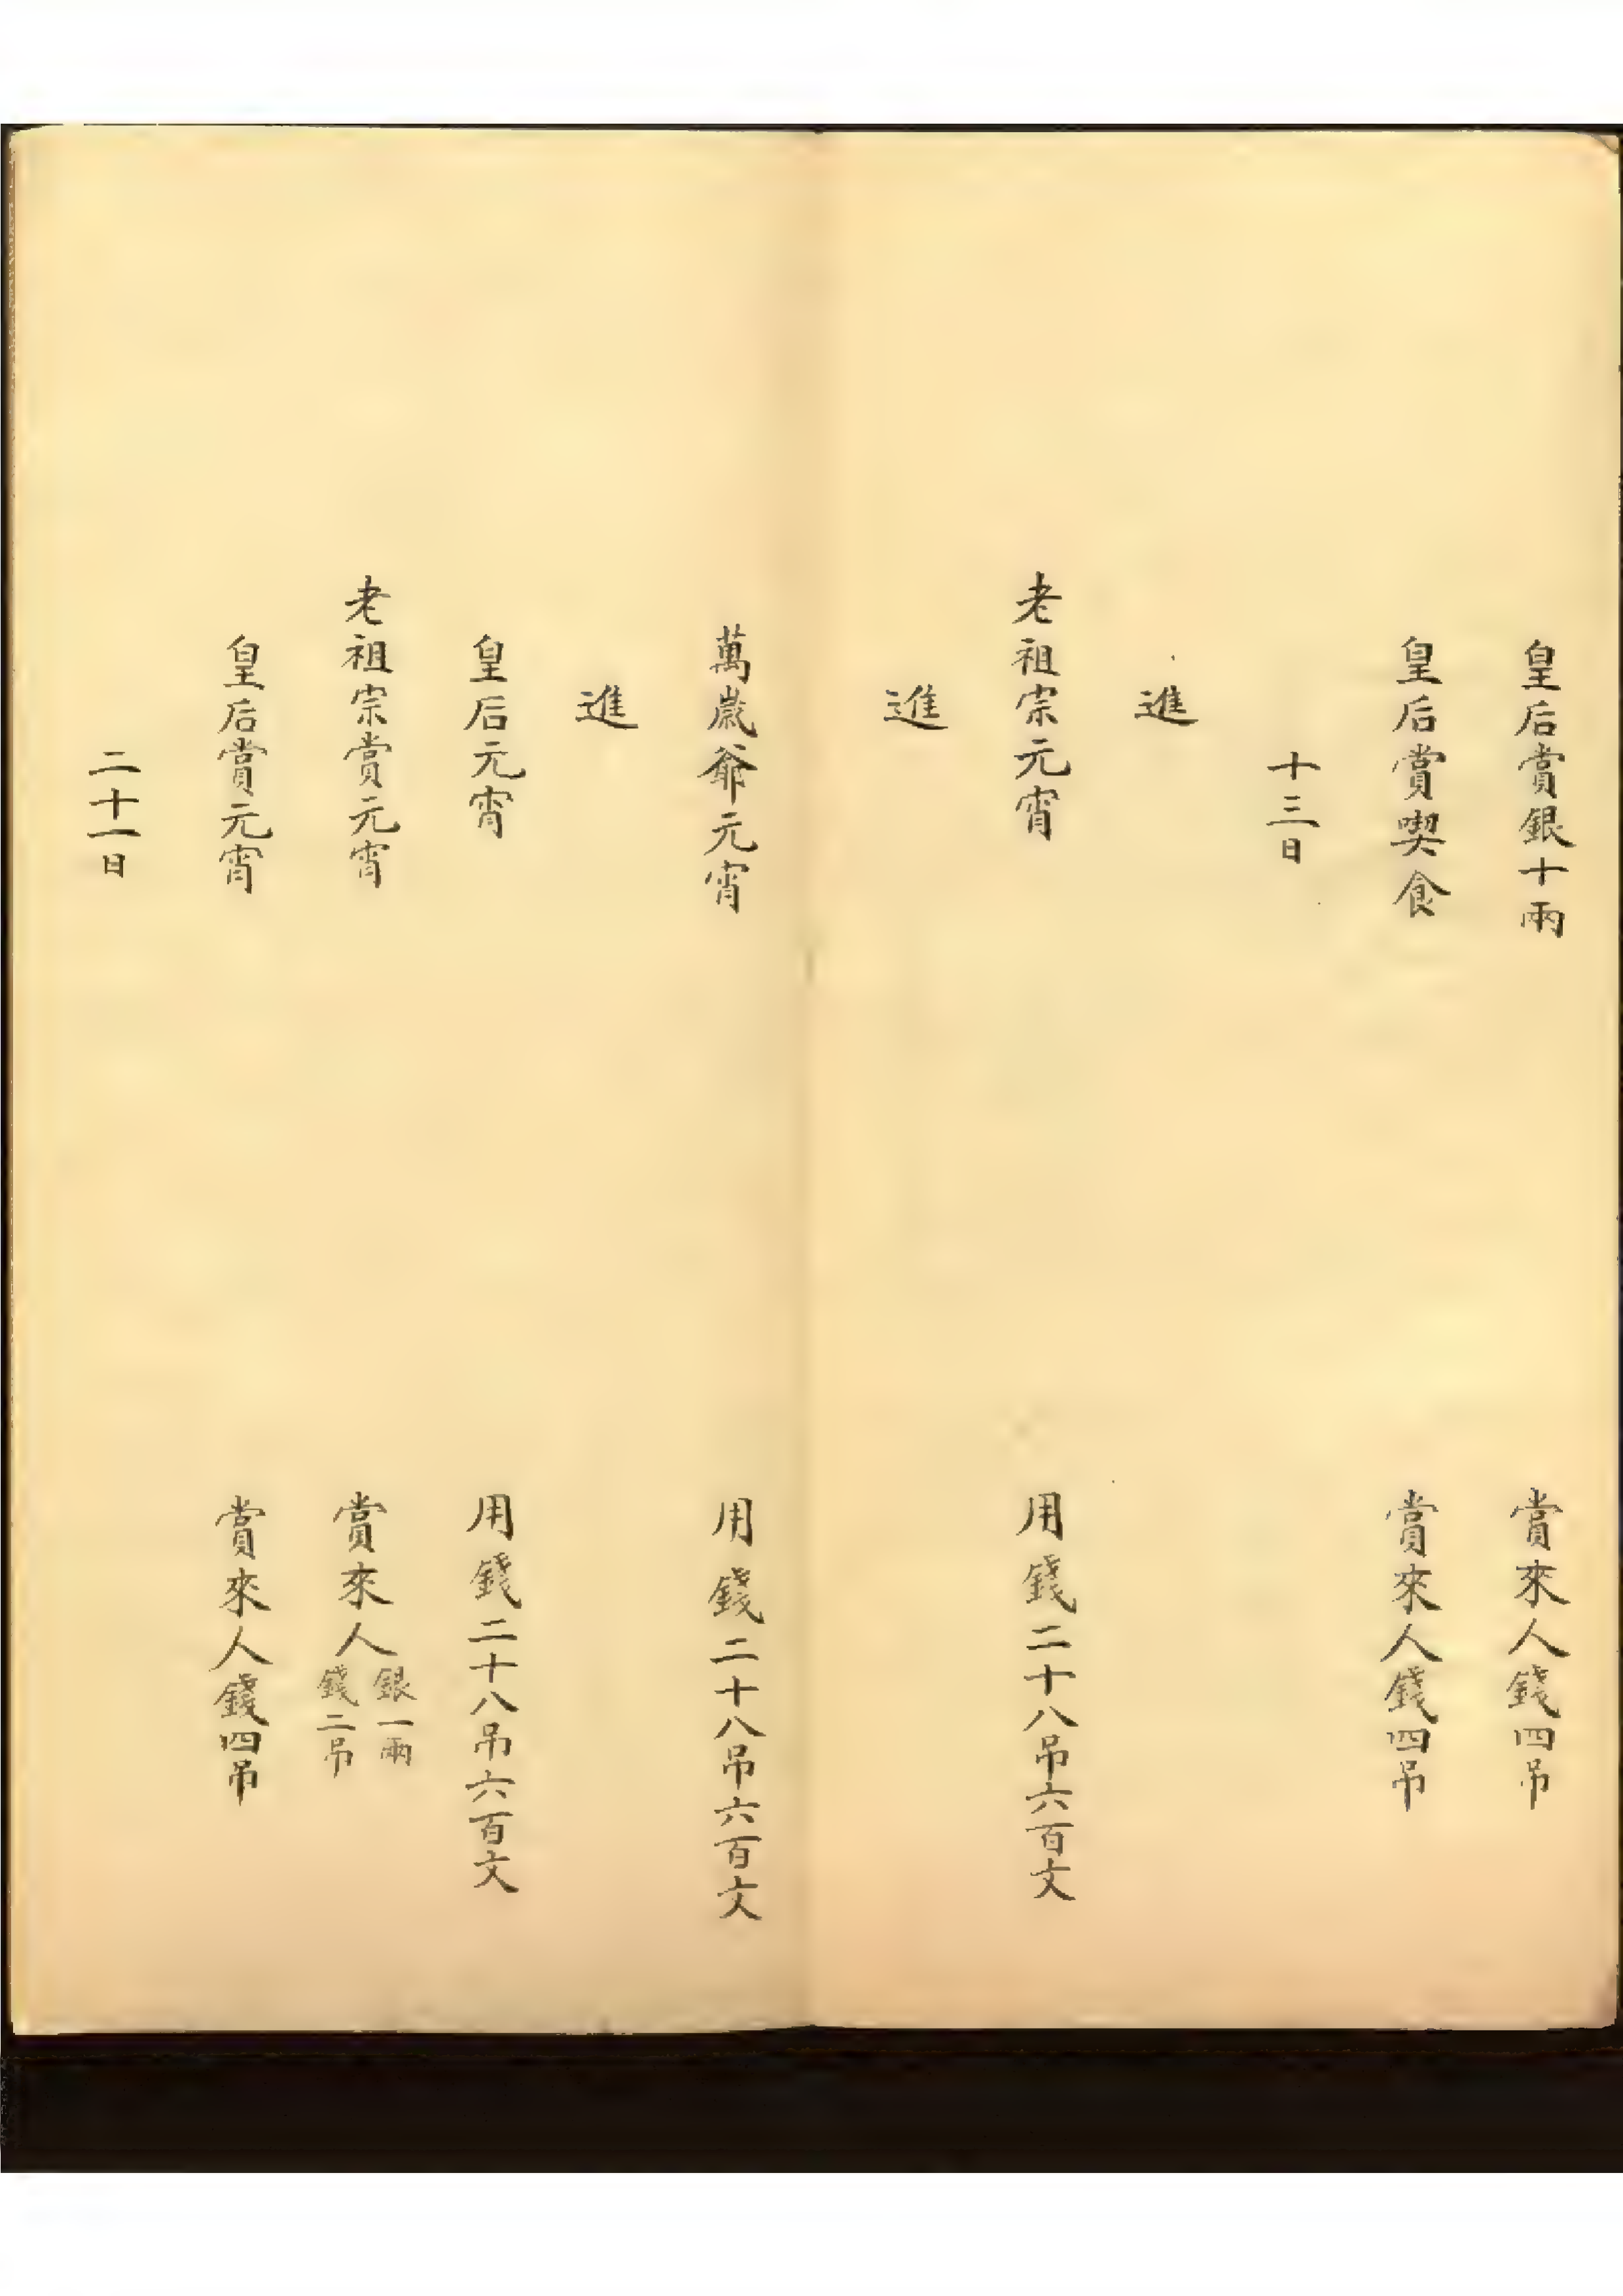 皇后賞銀十兩 賞來人錢四吊
皇后賞喫食 賞來人錢四吊
十三日
進
老祖宗元宵 用錢二十八吊六百文
進
萬歲爺元宵 用錢二十八吊六百文
進
皇后元宵 用錢二十八吊六百文
老祖宗賞元宵 賞來人銀一兩錢二吊
皇后賞元宵 賞來人錢四吊
二十一日